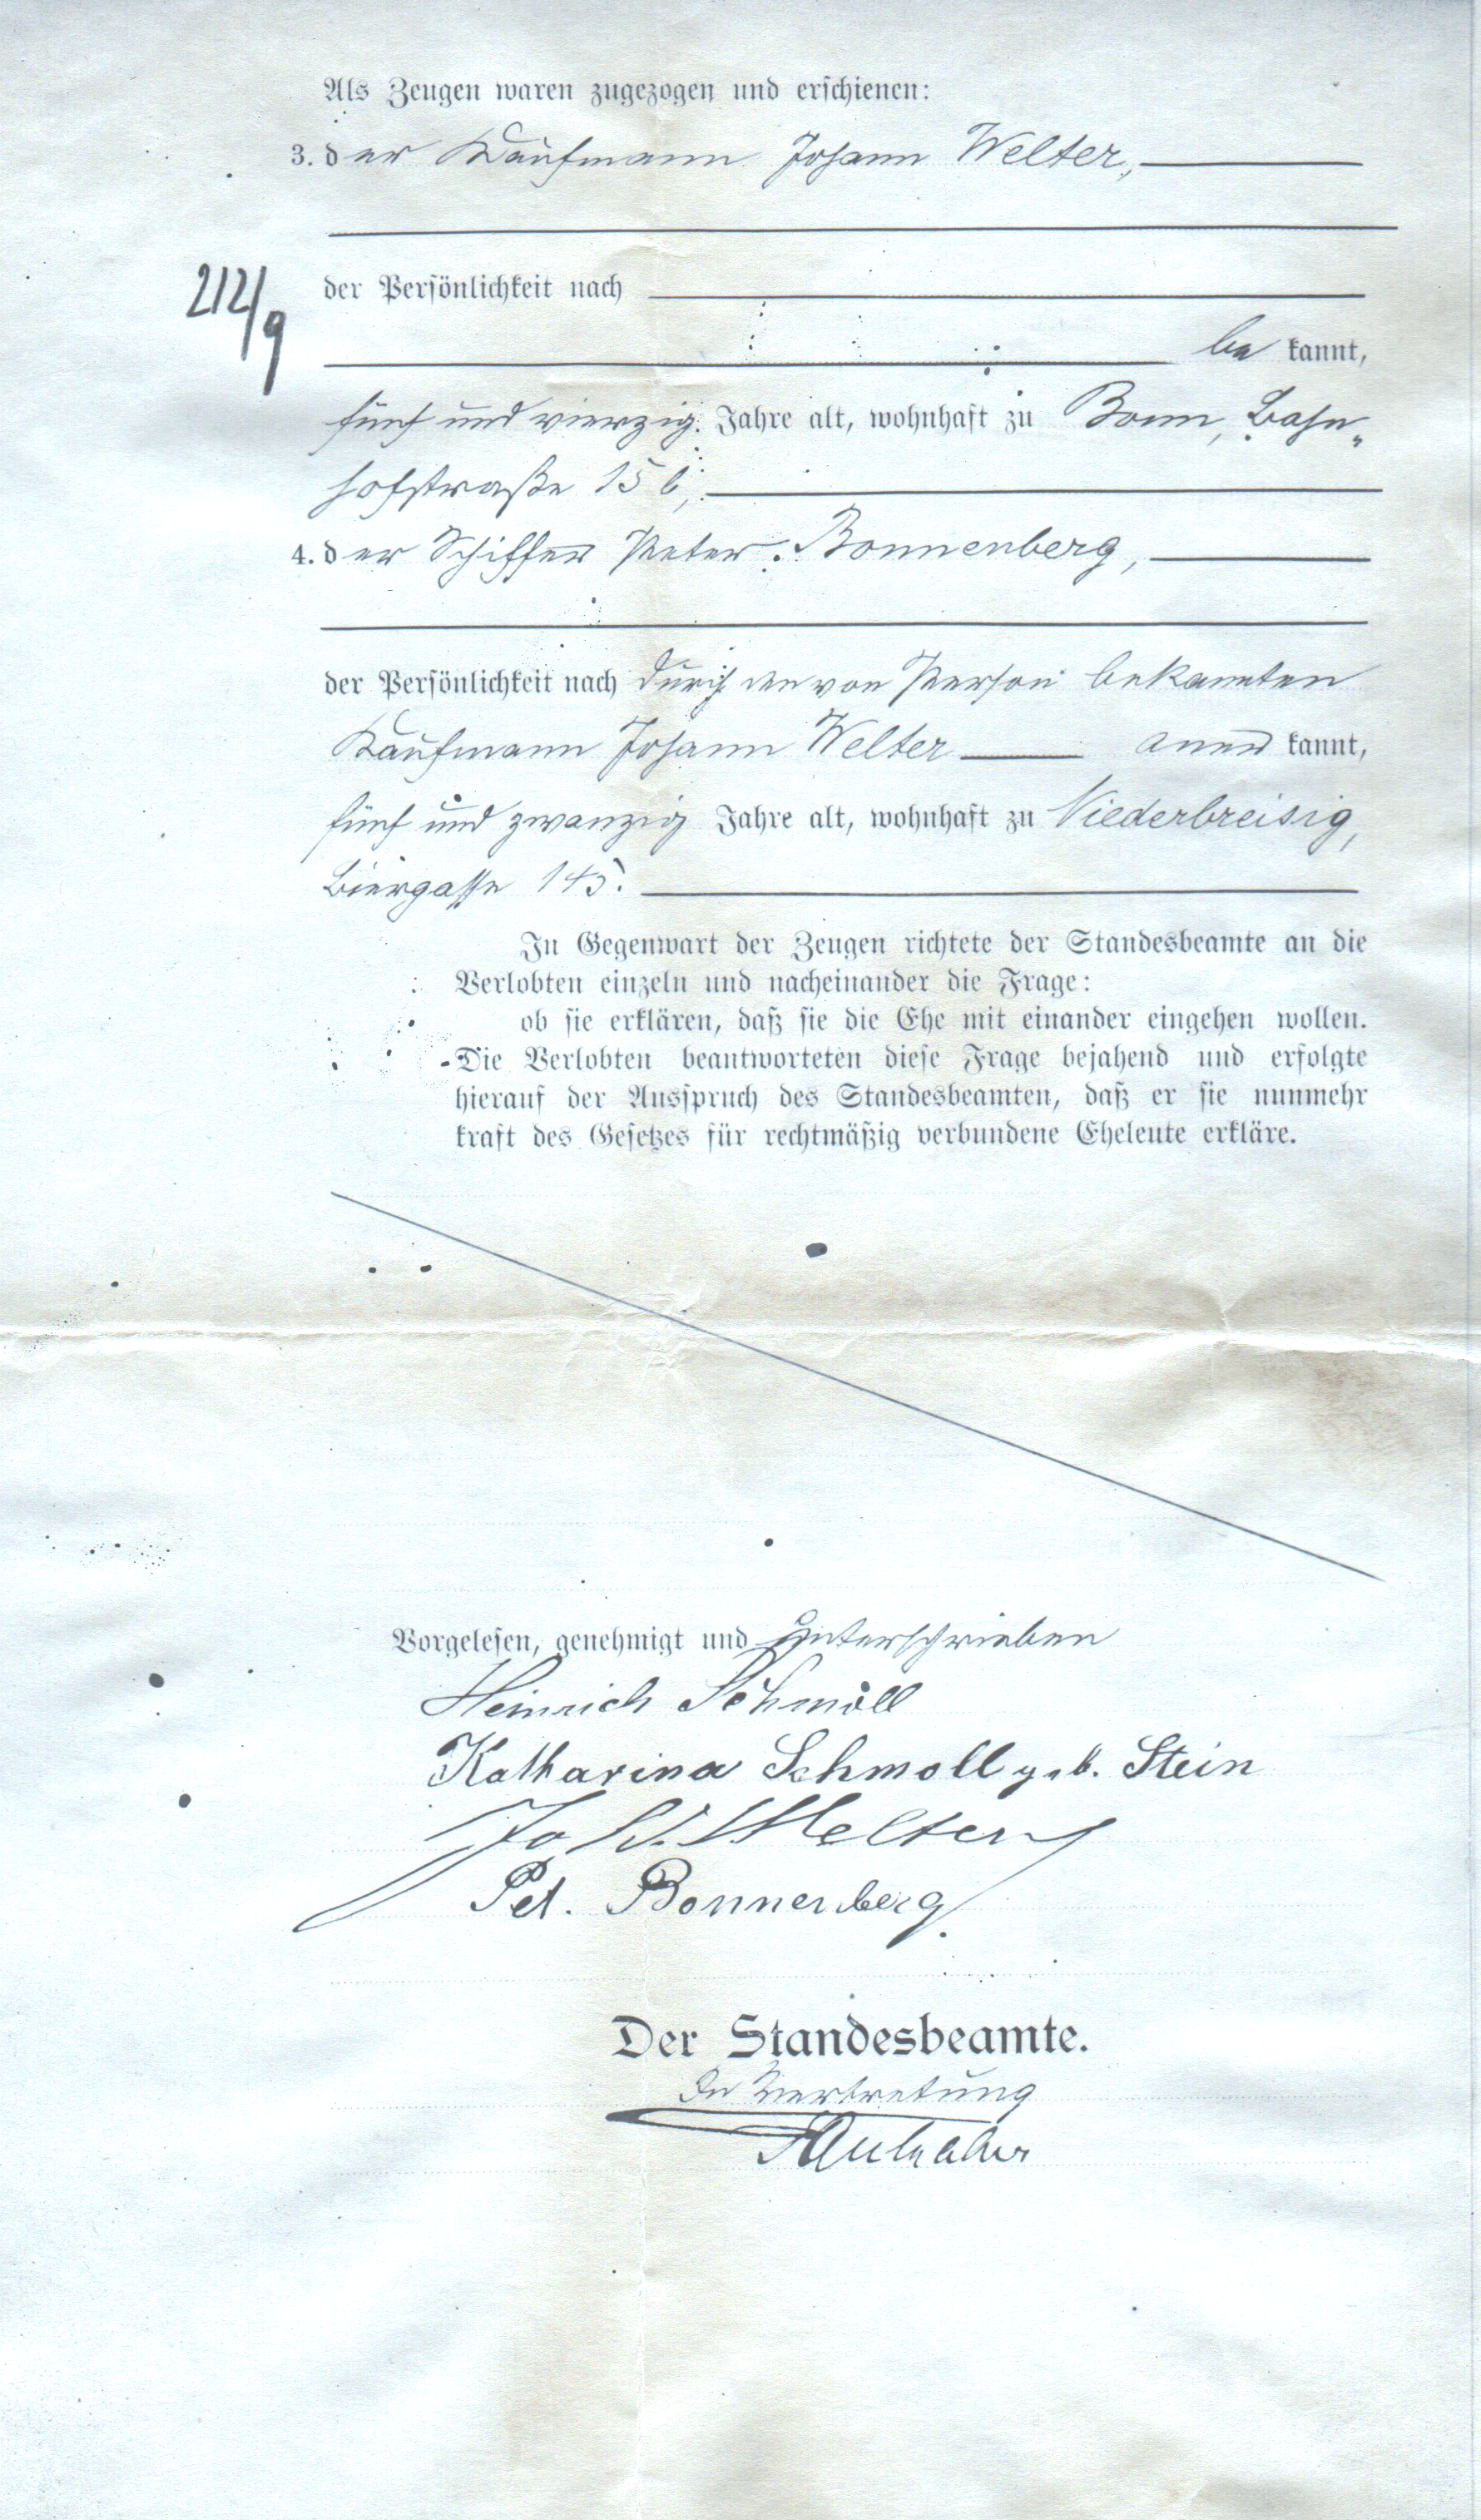 Als Zeugen waren zugezogen und erschienen:
3. der Kaufmann Johann Welter,
212/9
der Persönlichkeit nach
be kannt,
fünf und vierzig Jahre alt, wohnhaft zu Bonn, Bahn„
hofstraße 15 b,
4. der Schiffer Peter Bonnenberg,
der Persönlichkeit nach durch den von Person bekannten
Kaufmann Johann Welter aner kannt,
fünf und zwanzig Jahre alt, wohnhaft zu Niederbreisig,
Biergasse 145.
In Gegenwart der Zeugen richtete der Standesbeamte an die
Verlobten einzeln und nacheinander die Frage:
ob sie erklären, daß sie die Ehe mit einander eingehen wollen.
Die Verlobten beantworteten diese Frage bejahend und erfolgte
hierauf der Ausspruch des Standesbeamten, daß er sie nunmehr
kraft des Gesetzes für rechtmäßig verbundene Eheleute erkläre.
Vorgelesen, genehmigt und unterschrieben
Heinrich Schmoll
Katharina Schmoll geb. Stein
Joh. Welter
Pet. Bonnenberg
Der Standesbeamte.
In Vertretung